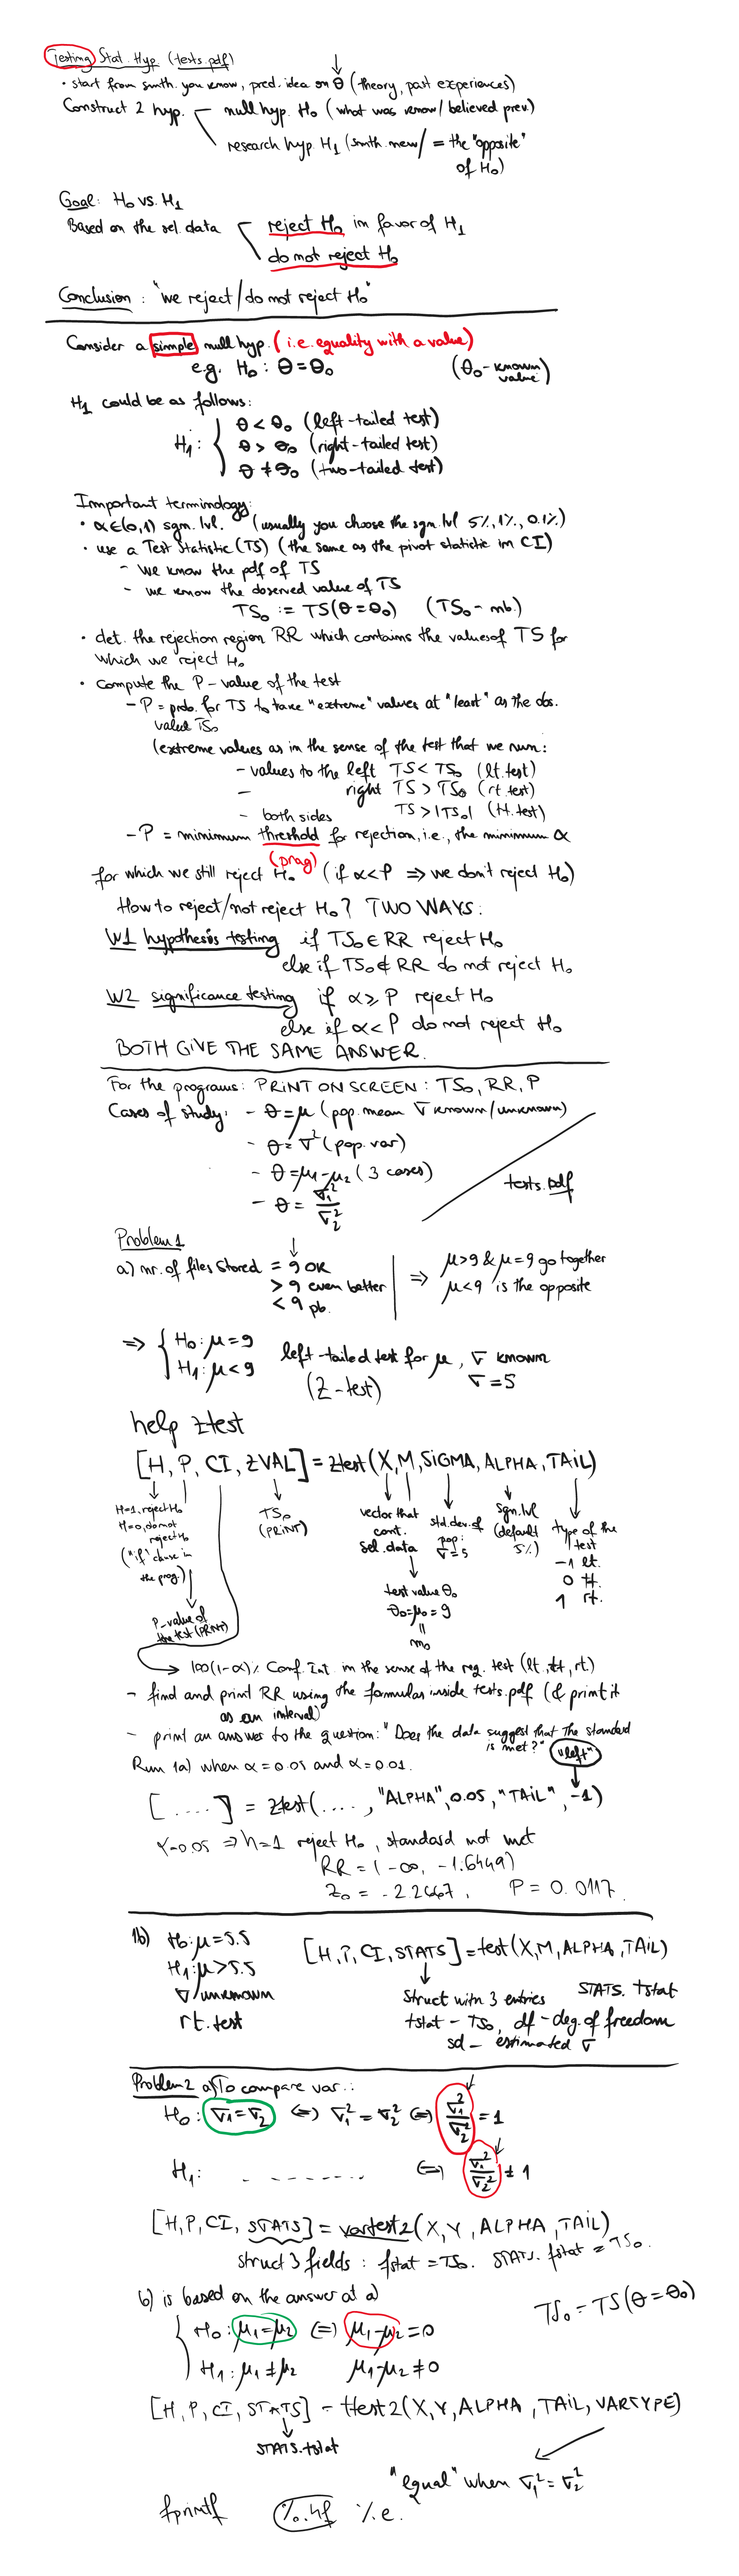 Testing Stat. Hyp (tests.pdf)
• start from smth. you know, pred. idea on θ (theory, past experiences)
Construct 2 hyp.
null hyp. H0 (what was know/believed prev.)
research hyp. H1 (smth. new/ = the "opposite"
of H0)
Goal: H0 vs. H1
Based on the sel. data
reject H0 in favor of H1
do not reject H0
Conclusion: "we reject/do not reject H0"
Consider a simple null hyp. (i.e. equality with a value)
e.g. H0: θ = θ0 (θ0 - known
value)
H1 could be as follows:
H1: { θ < θ0 (left-tailed test)
θ > θ0 (right-tailed test)
θ ≠ θ0 (two-tailed test)
Important terminology:
• α∈(0,1) sgn. lvl. (usually you choose the sgn. lvl 5%, 1%, 0.1%)
• use a Test Statistic (TS) (the same as the pivot statistic in CI)
- we know the pdf of TS
- we know the observed value of TS
TS0 := TS(θ=θ0) (TS0 - nb.)
• det. the rejection region RR which contains the values of TS for
which we reject H0
• compute the P-value of the test
- P = prob. for TS to take "extreme" values at "least" as the obs.
value TS0
(extreme values as in the sense of the test that we run:
- values to the left TS < TS0 (lt. test)
- right TS > TS0 (rt. test)
- both sides TS > |TS0| (tt. test)
- P = minimum threshold for rejection, i.e., the minimum α
(prag)
for which we still reject H0 (if α<P ⇒ we don't reject H0)
How to reject/not reject H0? TWO WAYS:
W1 hypothesis testing if TS0 ∈ RR reject H0
else if TS0 ∉ RR do not reject H0
W2 significance testing if α ≥ P reject H0
else if α < P do not reject H0
BOTH GIVE THE SAME ANSWER.
For the programs: PRINT ON SCREEN: TS0, RR, P
Cases of study: - θ=μ (pop. mean ∇ known/unknown)
- θ=∇² (pop. var)
- θ=μ1-μ2 (3 cases)
- θ = ∇1²/∇2²
tests.pdf
Problem 1
a) nr. of files stored = 9 OK
> 9 even better
< 9 pb.
⇒ μ>9 & μ=9 go together
μ<9 is the opposite
⇒ { H0: μ=9
H1: μ<9
left-tailed test for μ, ∇ known
(Z-test) ∇=5
help ztest
[H, P, CI, ZVAL] = ztest(X, M, SIGMA, ALPHA, TAIL)
H=1, reject H0
H=0, do not
reject H0
("if" clause in
the prog.)
P-value of
the test (PRINT)
TS0
(PRINT)
vector that
cont.
sel. data
test value θ0
θ0=μ0=9
m0
std. dev. of
pop:
∇=5
sgn. lvl
(default
5%)
type of the
test
-1 lt.
0 tt.
1 rt.
100(1-α)% Conf. Int. in the sense of the reg. test (lt., tt, rt.)
- find and print RR using the formulas inside tests.pdf (& print it
as an interval)
- print an answer to the question: "Does the data suggest that the standard
is met?"
"left"
Run 1a) when α=0.05 and α=0.01.
[....] = ztest(...., "ALPHA", 0.05, "TAIL", -1)
α=0.05 ⇒ h=1 reject H0, standard not met
RR = (-∞, -1.6449)
z0 = -2.2667, P = 0.0117
1b) H0: μ=5.5
H1: μ>5.5
∇ unknown
rt. test
[H, P, CI, STATS] = test(X, M, ALPHA, TAIL)
struct with 3 entries STATS. tstat
tstat - TS0, df - deg. of freedom
sd - estimated ∇
Problem 2 a) To compare var.:
H0: ∇1=∇2 ⇔ ∇1²=∇2² ⇔ ∇1²/∇2² = 1
H1: - - - - - - - ⇔ ∇1²/∇2² ≠ 1
[H, P, CI, STATS] = vartest2(X, Y, ALPHA, TAIL)
struct 3 fields: fstat = TS0. STATS. fstat = TS0.
b) is based on the answer at a)
TS0 = TS(θ=θ0)
{ H0: μ1=μ2 ⇔ μ1-μ2=0
H1: μ1≠μ2 μ1-μ2≠0
[H, P, CI, STATS] = ttest2(X, Y, ALPHA, TAIL, VARTYPE)
STATS.tstat
"equal" when ∇1²=∇2²
fprintf %.4f %e.